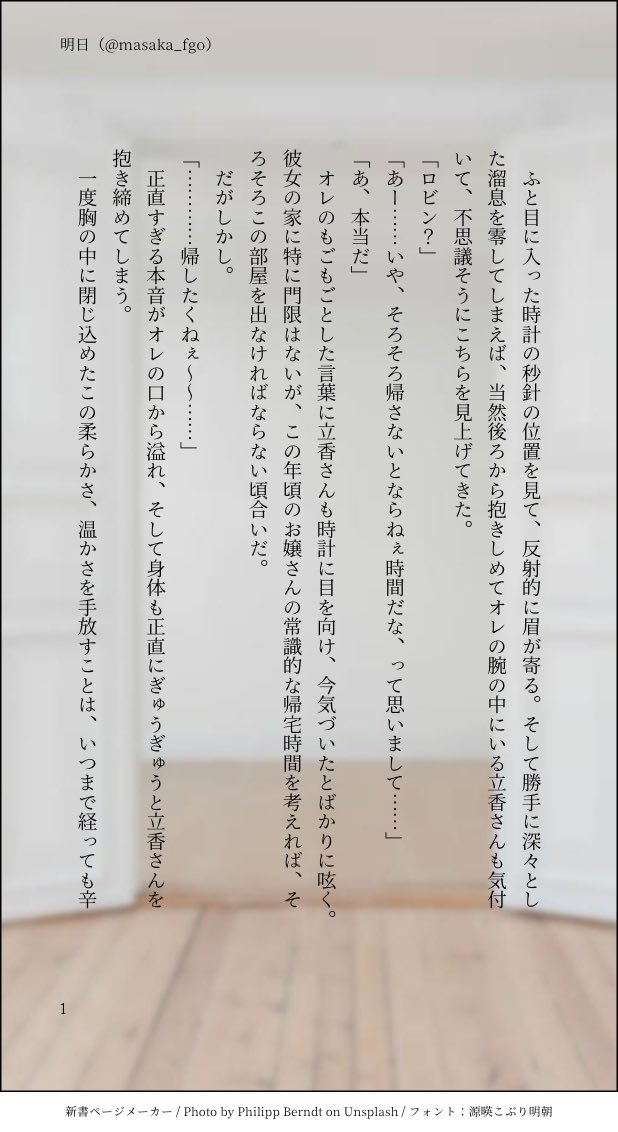 明日（@masaka_fgo）
　ふと目に入った時計の秒針の位置を見て、反射的に眉が寄る。そして勝手に深々とし
た溜息を零してしまえば、当然後ろから抱きしめてオレの腕の中にいる立香さんも気付
いて、不思議そうにこちらを見上げてきた。
「ロビン？」
「あー……いや、そろそろ帰さないとならねぇ時間だな、って思いまして……」
「あ、本当だ」
　オレのもごもごとした言葉に立香さんも時計に目を向け、今気づいたとばかりに呟く。
彼女の家に特に門限はないが、この年頃のお嬢さんの常識的な帰宅時間を考えれば、そ
ろそろこの部屋を出なければならない頃合いだ。
　だがしかし。
「…………帰したくねぇ〜〜……」
　正直すぎる本音がオレの口から溢れ、そして身体も正直にぎゅうぎゅうと立香さんを
抱き締めてしまう。
　一度胸の中に閉じ込めたこの柔らかさ、温かさを手放すことは、いつまで経っても辛
1
新書ページメーカー / Photo by Philipp Berndt on Unsplash / フォント：源暎こぶり明朝